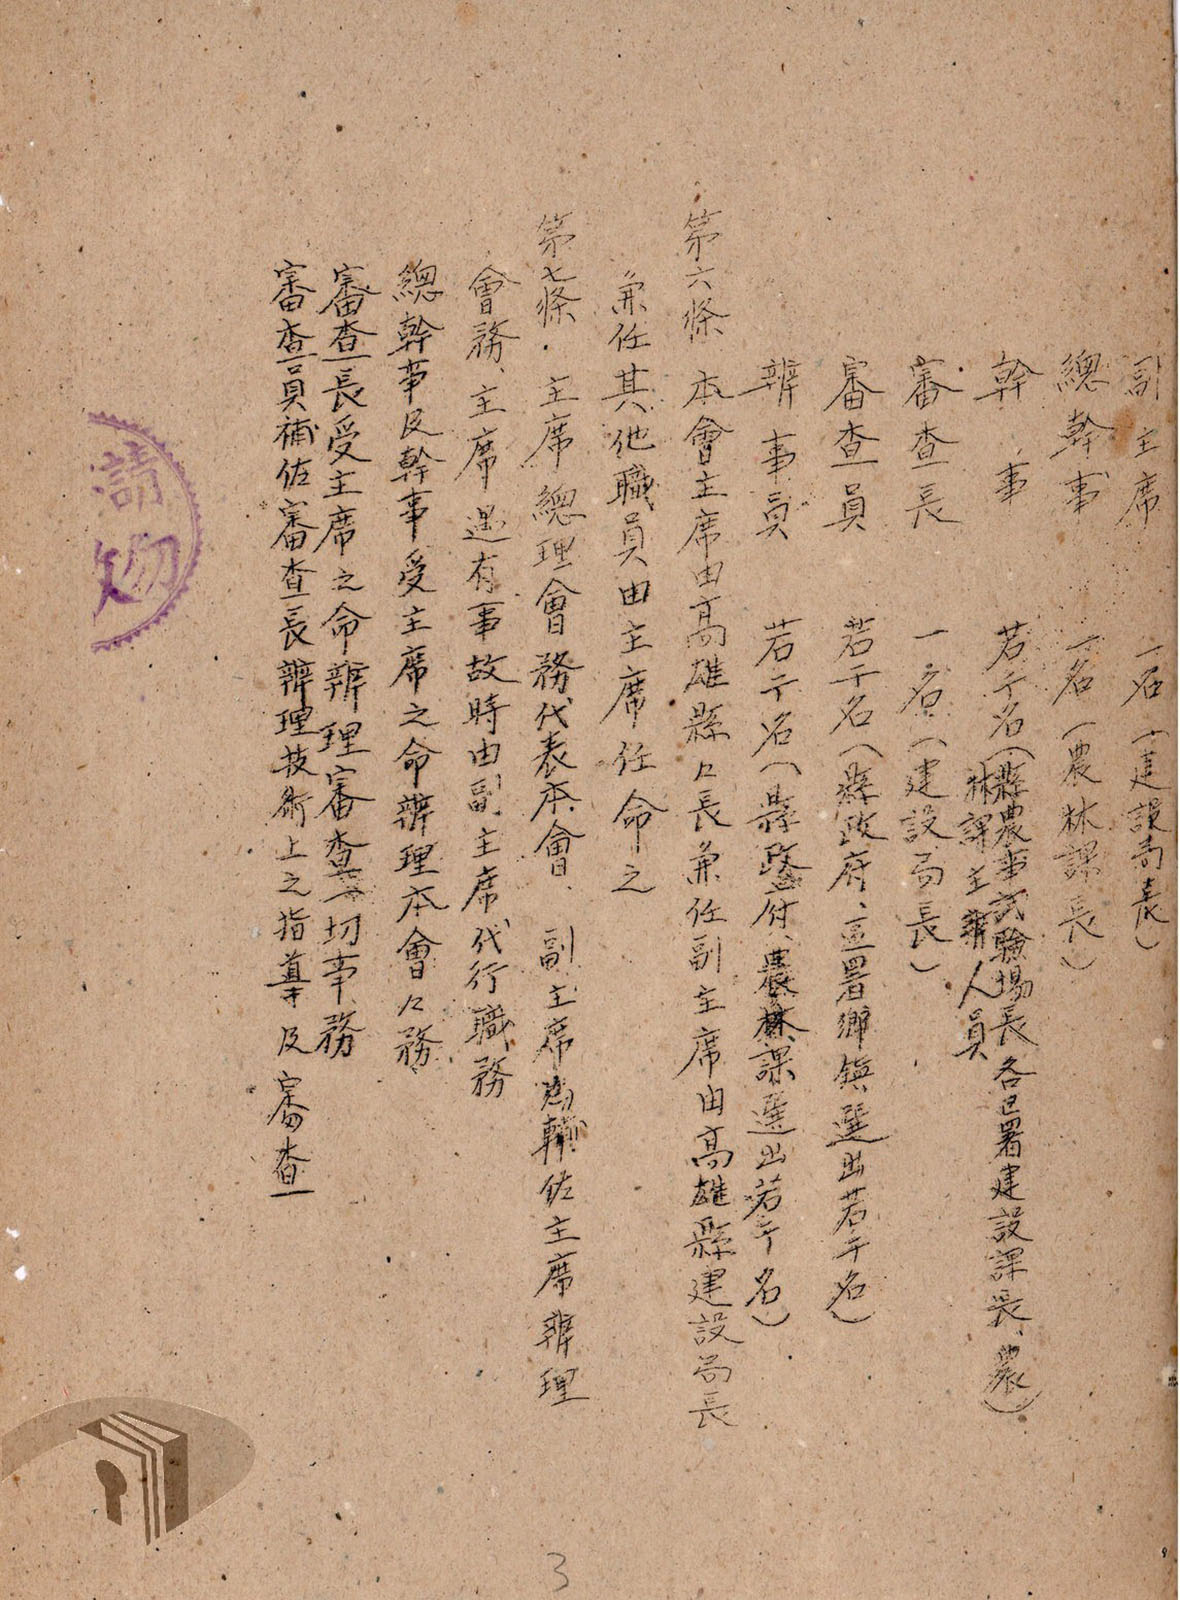 副主席 一名(建設局長)
總幹事 一名(農林課長)
幹事 若干名(縣農事試驗場長各区署建設課長、農
林課主辦人員)
審查長 一名(建設局長)
審查員 若干名(縣政府、區署鄉鎮選出若干名)
辦事員 若干名(縣政府、農林課選出若干名)
第六條 本會主席由高雄縣々長兼任副主席由高雄縣建設局長
兼任其他職員由主席任命之
第七條.主席總理會務代表本會、副主席為輔佐主席辦理
會務、主席遇有事故時由副主席代行職務
總幹事及幹事受主席之命辦理本會々務
審查長受主席之命辦理審查一切事務
審查員補佐審查長辦理技術上之指導及審查
3